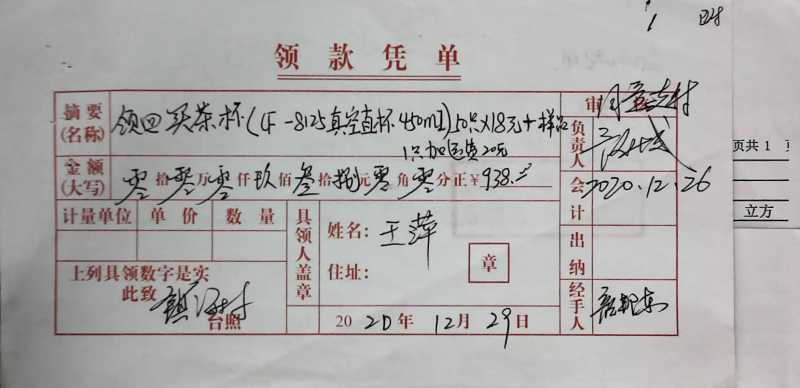 领款凭单
摘要(名称) 领回买茶杯(CF-8125真空直杯450ml)50只×18元+样品
1只加运费20元
金额(大写) 零拾零万零仟玖佰叁拾捌元零角零分正¥938.
计量单位 单价 数量
具领人盖章
姓名:王萍
住址:
章
上列具领数字是实
此致
台照
2020年12月29日
审
同意支付
负责人
会计
2020.12.26
出纳
经手人
页共1
立方